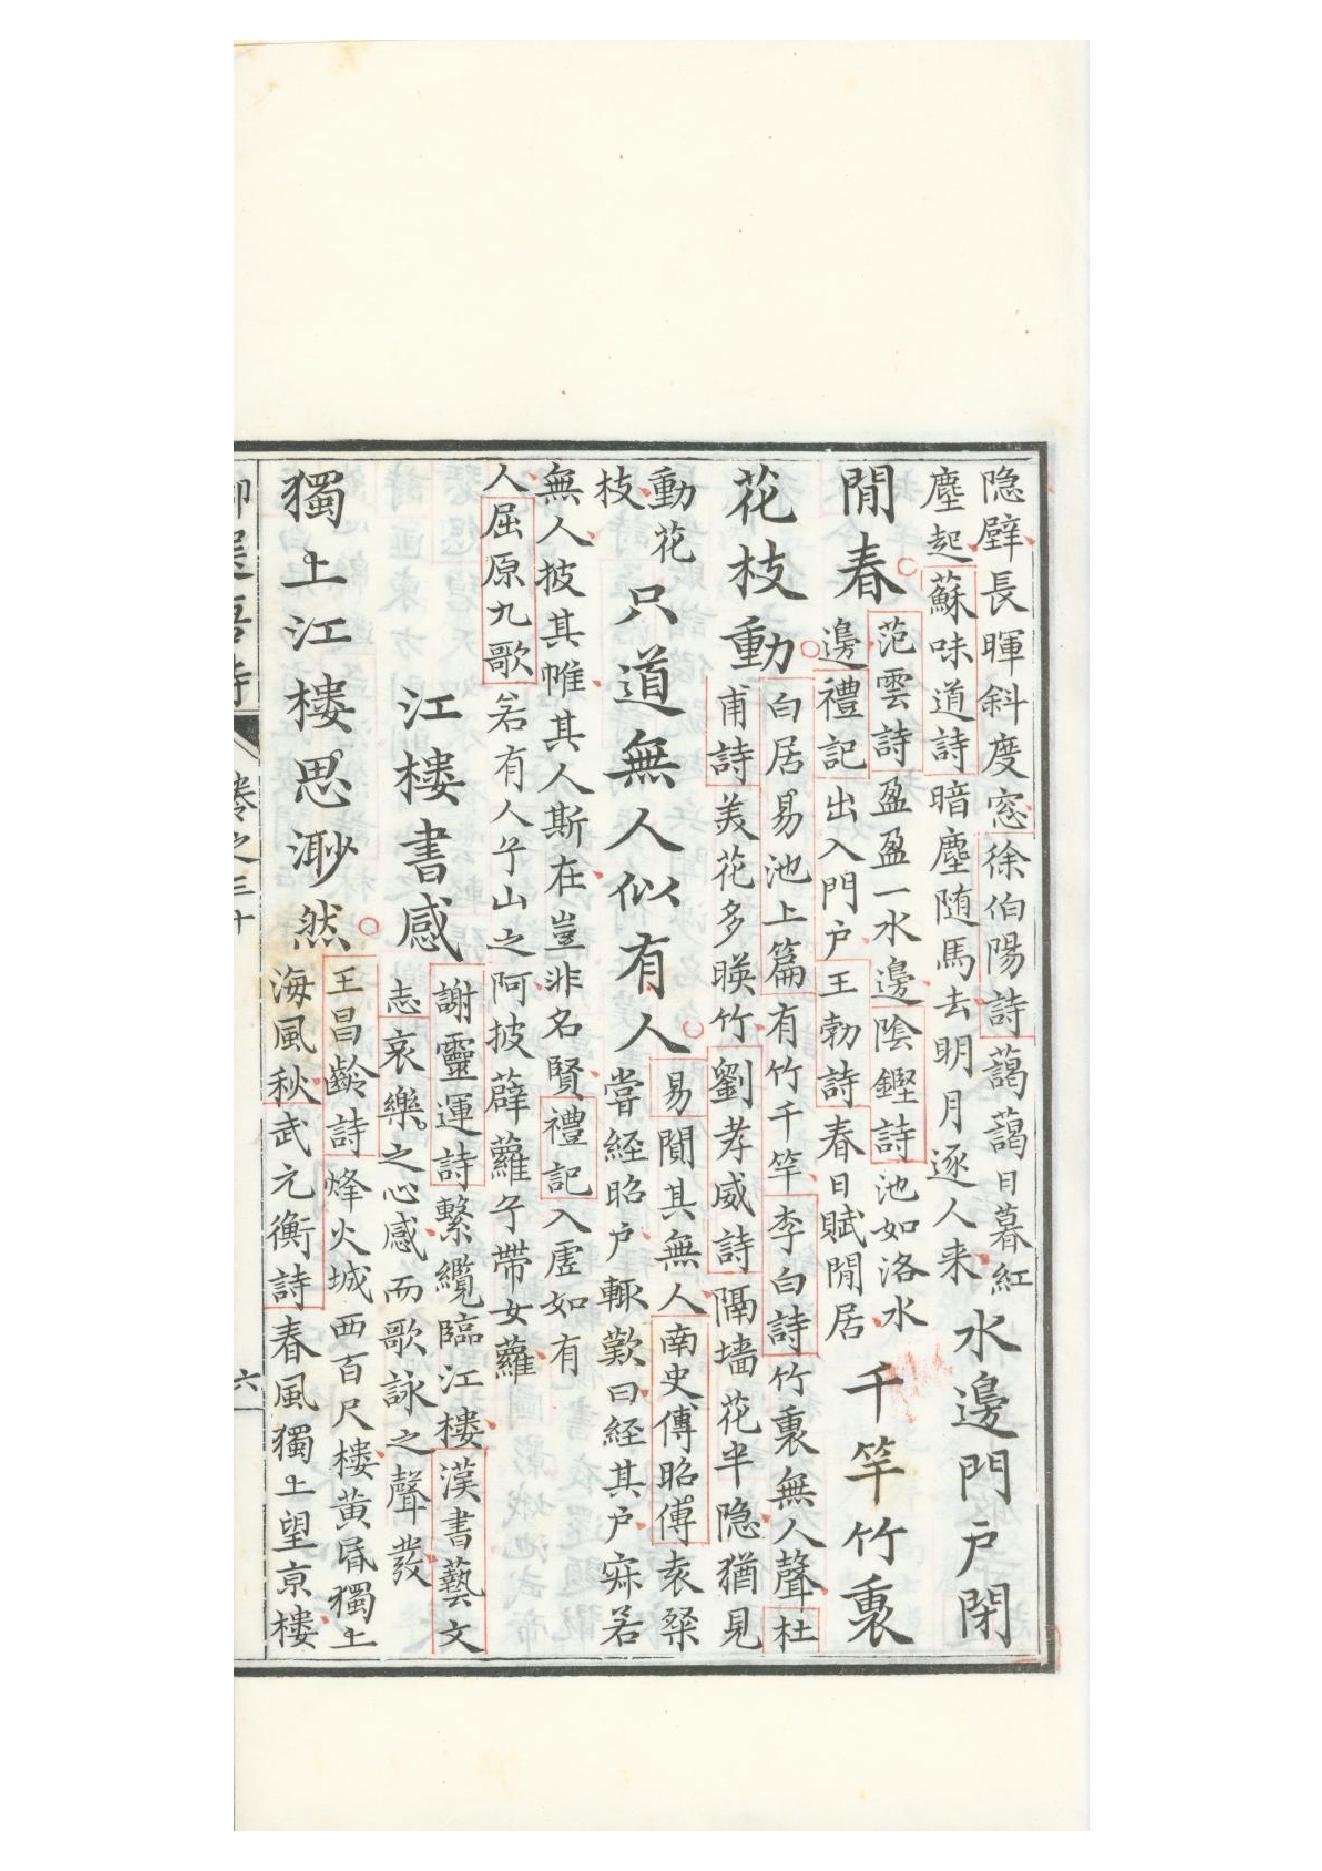 隐壁長暉斜度窓徐伯陽詩藹藹日暮紅
塵起蘇味道詩暗塵随馬去明月逐人来
水邊門户閉
閒春
范雲詩盈盈一水邊陰鏗詩池如洛水
邊禮記出入門户王勃詩春日賦閒居
千竿竹裏
花枝動
白居易池上篇有竹千竿李白詩竹裏無人聲杜
甫詩美花多暎竹劉孝威詩隔墙花半隐猶見
動花
枝
只道無人似有人
易闃其無人南史傅昭傅袁粲
嘗経昭户輙歎曰経其户寂若
無人披其帷其人斯在豈非名賢禮記入虚如有
人屈原九歌若有人兮山之阿披薜蘿兮帶女蘿
江楼書感
謝靈運詩繫纜臨江楼漢書藝文
志哀樂之心感而歌詠之聲發
獨上江楼思渺然
王昌齡詩烽火城西百尺楼黄昏獨上
海風秋武元衡詩春風獨上望京楼
卷之三十
六